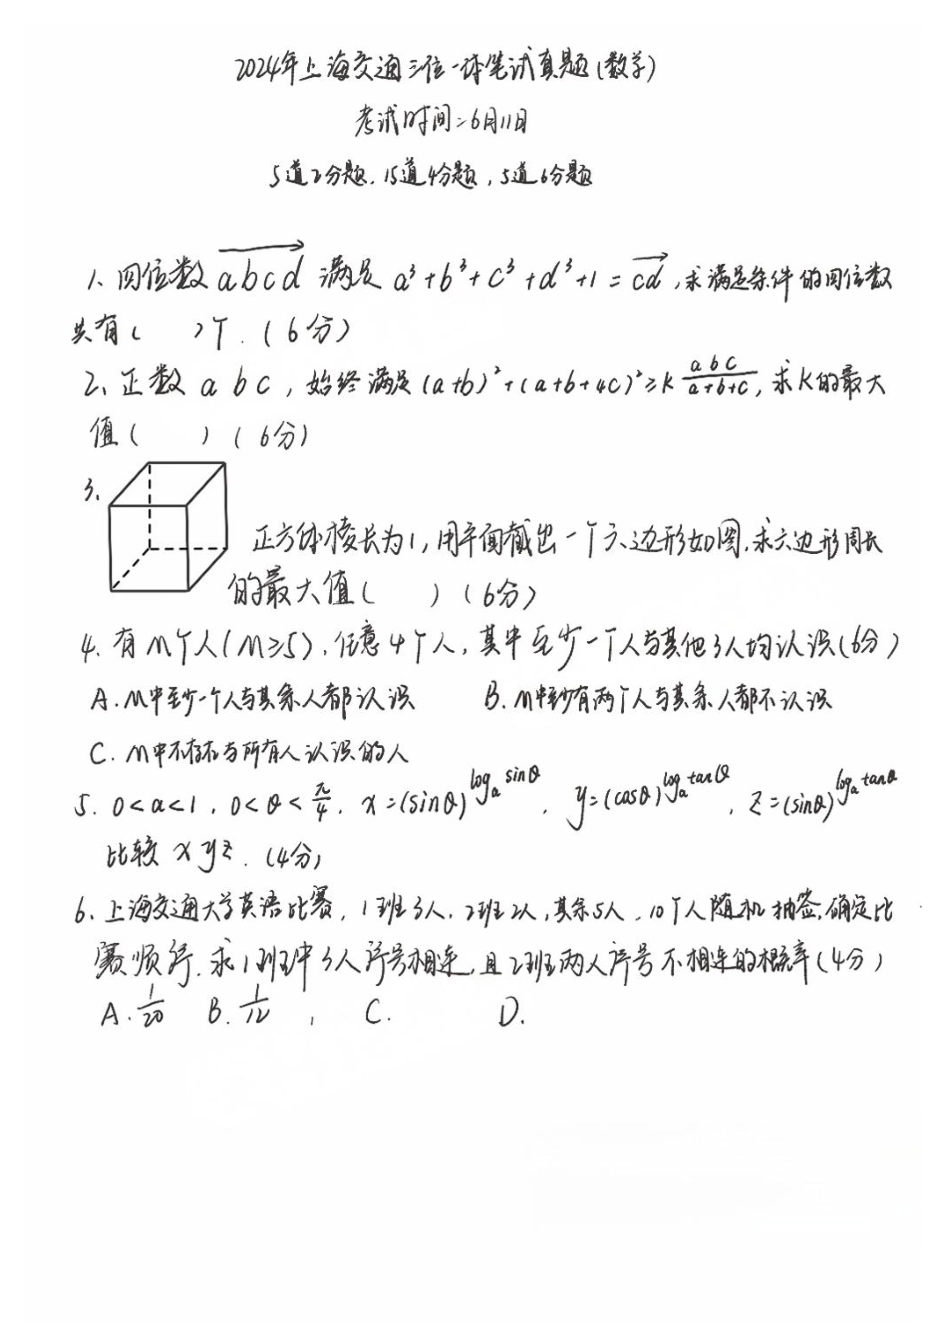 2024年上海交通三位一体笔试真题(数学)
考试时间:6月11日
5道2分题, 15道4分题, 5道6分题
1、四位数 abcd 满足 a³+b³+c³+d³+1=cd,求满足条件的四位数
共有( )个.(6分)
2、正数 a b c, 始终满足 (a+b)²+(a+b+4c)²≥K abc/(a+b+c), 求K的最大
值( )(6分)
3、
正方体棱长为1,用平面截出一个六边形如图,求六边形周长
的最大值( )(6分)
4、有M个人(M≥5),任意4个人,其中至少一个人与其他3人均认识(6分)
A.M中至少一个人与其余人都认识 B.M中至少有两个人与其余人都不认识
C. M中不存在与所有人认识的人
5. 0<a<1, 0<θ<π/4, x=(sinθ)^(logₐ sinθ), y=(cosθ)^(logₐ tanθ), z=(sinθ)^(logₐ tanθ)
比较 x y z. (4分)
6、上海交通大学英语比赛, 1班3人, 2班2人,其余5人, 10个人随机抽签,确定比
赛顺序.求1班中3人序号相连,且2班两人序号不相连的概率(4分)
A. 1/20 B. 1/12 , C. D.